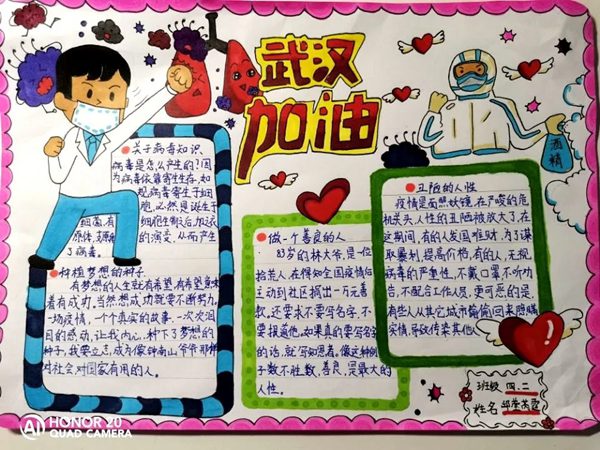 武汉
加油
关于病毒知识
病毒是怎么产生的?因
为病毒依靠寄生生存,如
现病毒寄生于细
胞,必然是诞生于
细菌,有细胞生物之后,加以
原体,支原
的演变,从而产生
了病毒。
种植梦想的种子
有梦想的人生就有希望,有希望意味
着有成功,当然想成功就要不断努力。
一场疫情,一个个真实的故事,一次次泪
目的感动,让我内心,种下了梦想的
种子,我要立志,成为像钟南山爷爷那样
对社会对国家有用的人。
做一个善良的人
83岁的林大爷,是一位
拾荒人,在得知全国疫情后
主动到社区捐出一万元善
款,还要求不要写名字,不
要报道他。如果真的要写名字
的话,就写知恩者。像这种例
子数不胜数,善良,是最大的
人性。
丑陋的人性
疫情是面照妖镜,在严峻的危
机关头,人性的丑陋被放大了,在
这期间,有的人发国难财,为了谋
取暴利,提高价格,有的人,无视
病毒的严重性,不戴口罩,不听劝
告,不配合工作人员,更可恶的是
有些人从其它城市偷偷回来隐瞒
实情,导致传染其他人
酒精
班级 四.二
姓名
AI HONOR 20
QUAD CAMERA